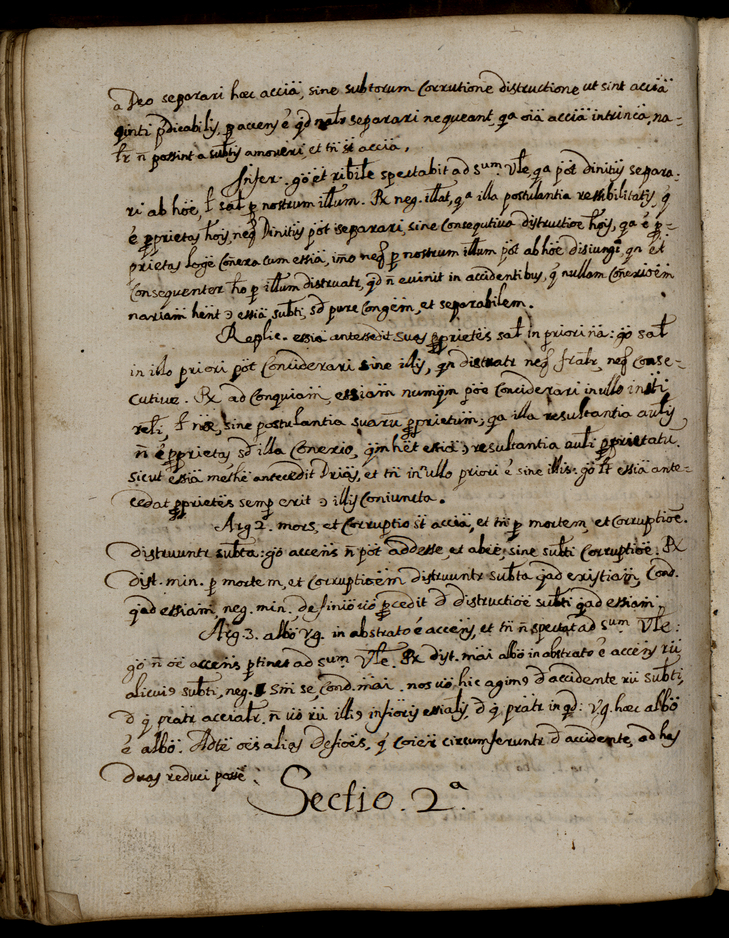 a Deo separari hæc acciã, sine subtorum Corrutione distructione ut sint acciã
quinti p̃dicabilis, p accens ẽ qd natr separari nequeant qa oiã acciã intrinca, na=
lr ñ possint a subtis amoveri, et tñ st accia.
Infer. go et ribile spectabit ad 5um Vle, qa põt dinitus separa.
ri ab hõe, l salt p nostrum illum. Rx neg. illat, qa illa postulantia ressibilitatis, q
ẽ pprietas hois, neq Dinitus põt separari, sine Consequtiva distructiõe hois, qa ẽ p=
prietas Conexa cum essiã, imo neq p nostrum illum põt ab hõe disiungi, qn et
Consequenter ho p illum distruatr, qd ñ evinit in accidentibus, q nullam Conexioẽm
nariam hent ɔ essiã subti, sd pure Congẽm, et separabilem.
Replic. essiã antessedit suas pprietẽs salt in priori nã: go salt
in illo priori põt Conciderari sine illis, qn distruatr neq fratr, neq Conse=
cutive. Rx ad Conquiam, essiam numqm põe Conciderari in ullo insti
reli, l næ, sine postulantia suarũ pprietum; qa illa resultantia autis
ñ ẽ pprietas sd illa Conexio, qm hẽt essiã ɔ resultantia auti pprietatu.
sicut essiã methẽ antecedit Driãs, et tñ in ullo priori ẽ sine illis. go lt essiã ante=
cedat pprietẽs semp erit ɔ illis Coniuncta.
Arg 2. mors, et Corruptio st acciã, et tñ p mortem, et Corruptiõe.
distruuntr subta: go accens ñ põt addesse, et abẽe, sine subti Corruptiõe. Rx
dist. min. p mortem, et Corruptioẽm distruuntr subta qad existiam, Cond.
qad essiam neg. min. definio vo pcedit d distructioẽ subti qad essiam.
Arg. 3. albõ vg. in abstrato ẽ accens, et tñ ñ spectat ad 5um Vle:
go ñ oẽ accens ptinet ad 5um Vle. Rx dist. mai albõ in abtrato ẽ accens rii
alicuiɔ subti, neg. Sm se, Cond. mai. nos vo hic agimɔ d accidente rii subti,
d q pratr accialr. ñ vo rii illiɔ infioris essialis, d q pratr in qd: vg. hæc albõ
ẽ albõ. Adte oẽs alias desiões, q Coier circumferuntr d accidente, ad has
duas reduci posse.
Sectio. 2ª.